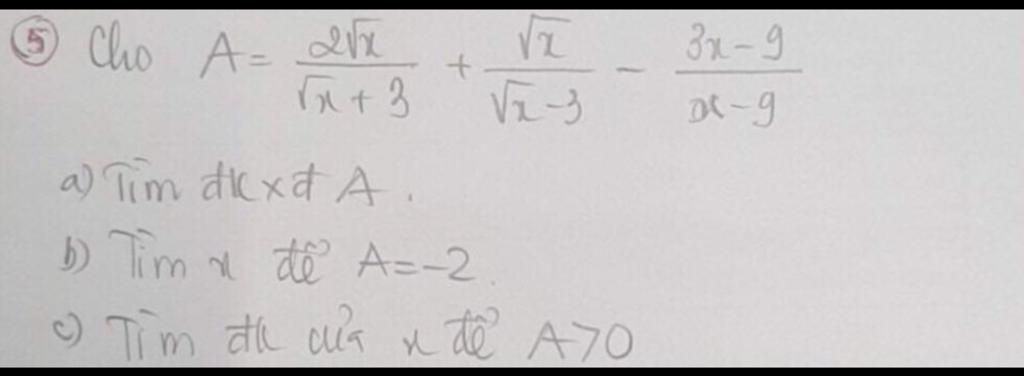 ⑤ Cho A = \frac{2\sqrt{x}}{\sqrt{x}+3} + \frac{\sqrt{x}}{\sqrt{x}-3} - \frac{3x-9}{x-9}
a) Tìm đkxđ A.
b) Tìm x để A=-2.
c) Tìm đk của x để A>0